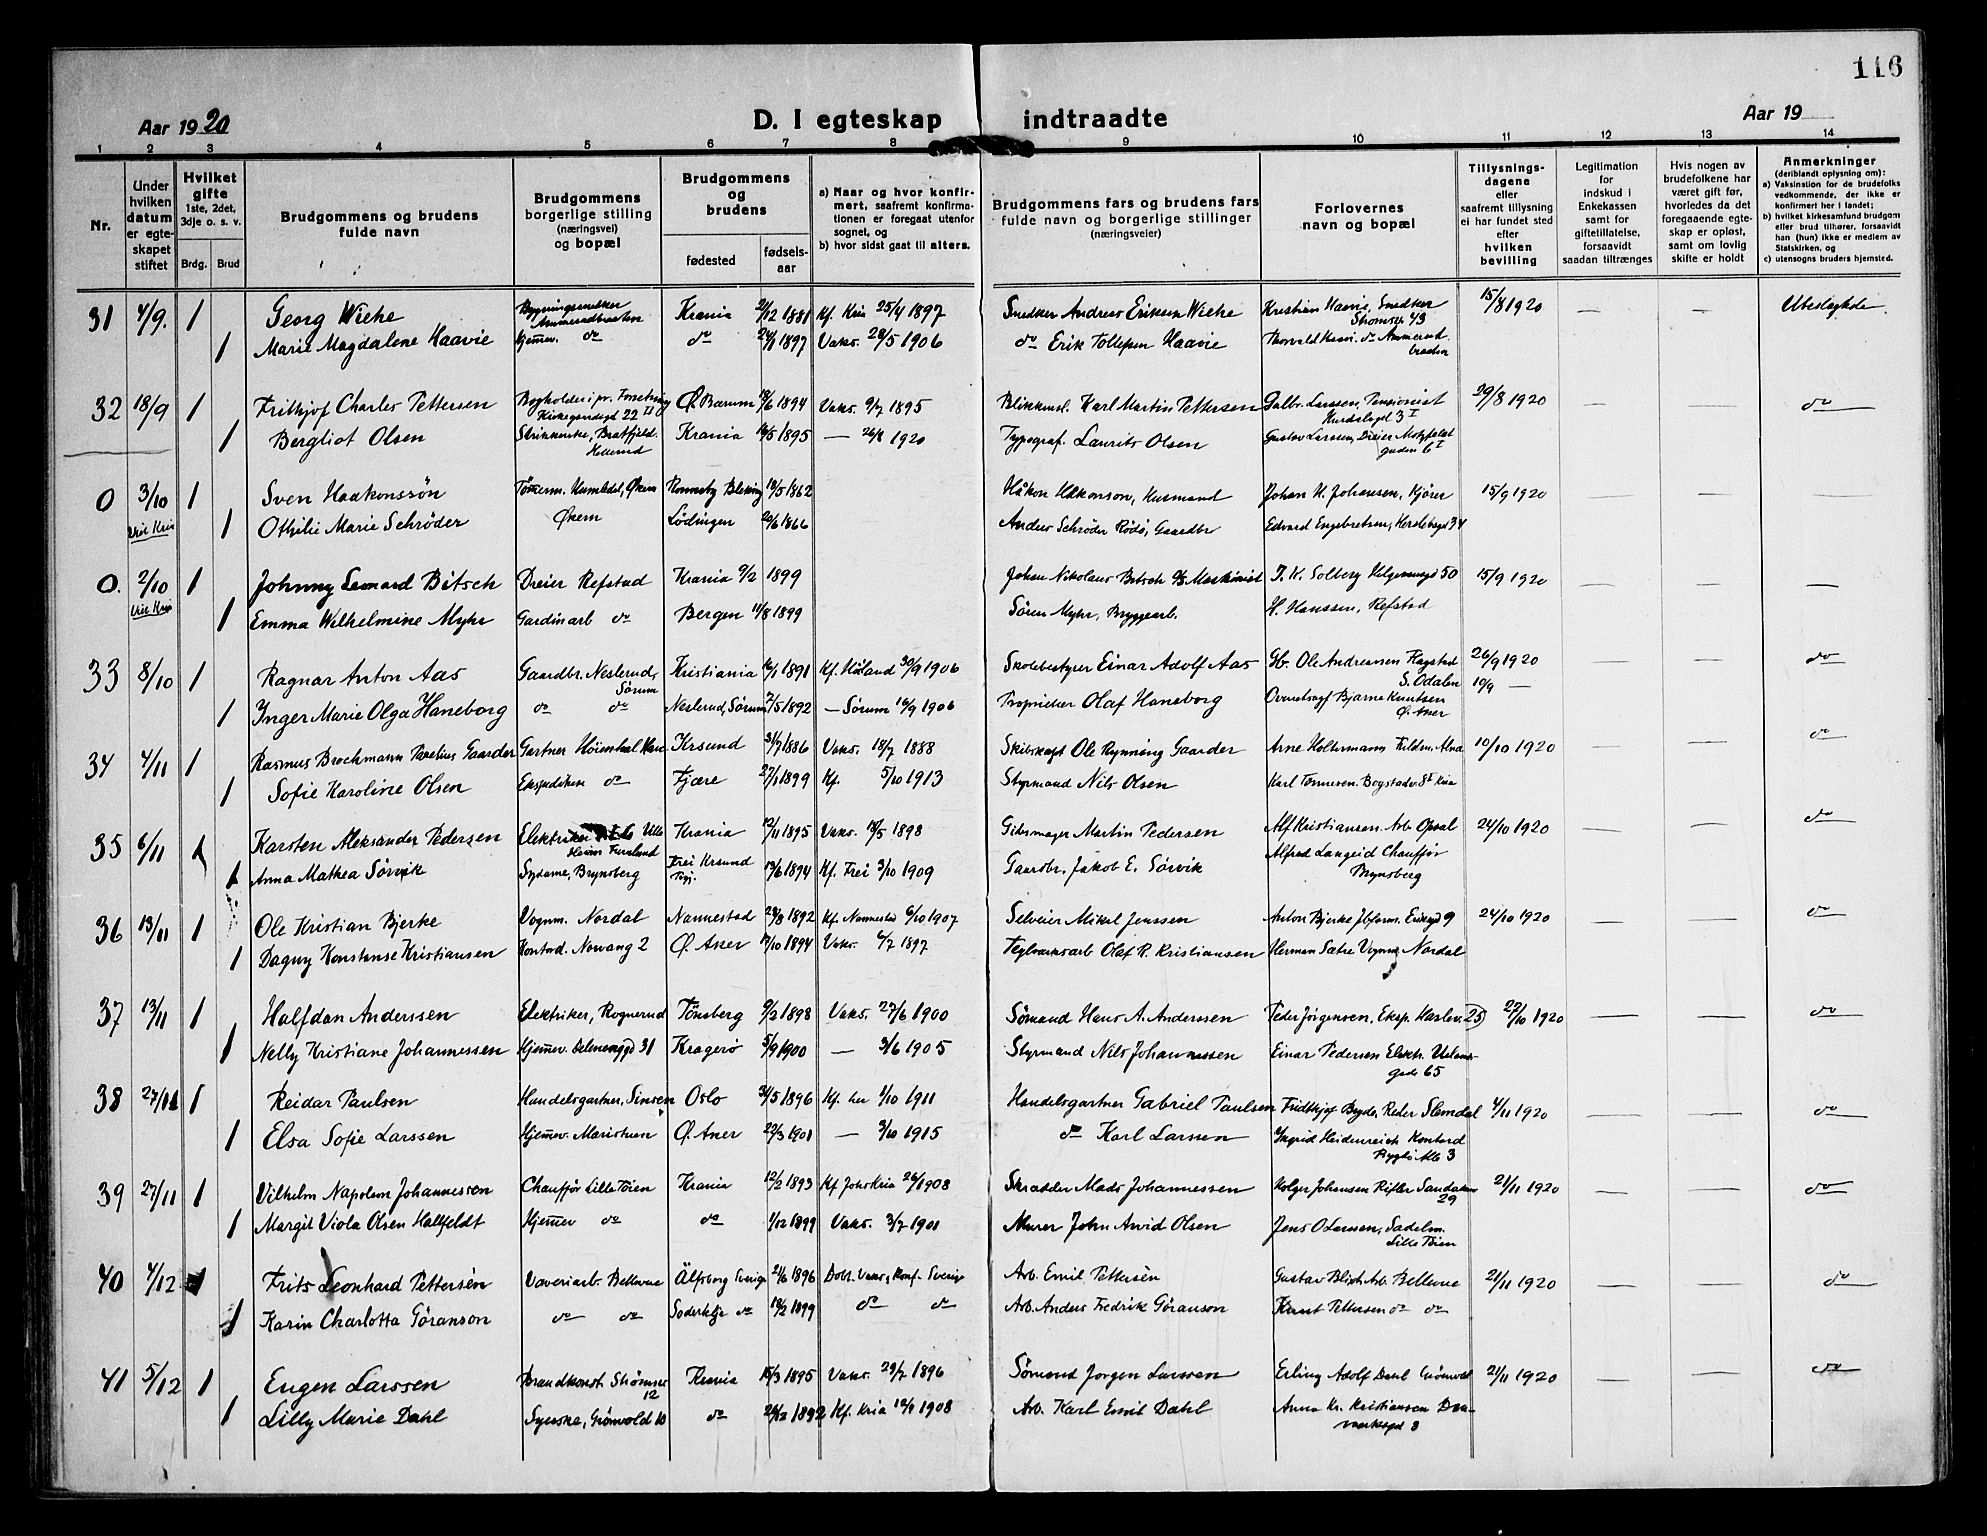 116
Aar 1920
D. I egteskap indtraadte
Aar 19
1 2 3 4 5 6 7 8 9 10 11 12 13 14
Nr.
Under hvilken datum er egteskapet stiftet
Hvilket gifte
1ste, 2det, 3dje o. s. v.
Brdg. Brud
Brudgommens og brudens fulde navn
Brudgommens borgerlige stilling (næringsvei) og bopæl
Brudgommens og brudens
fødested
fødselsaar
a) Naar og hvor konfirmert, saafremt konfirmationen er foregaat utenfor sognet, og
b) hvor sidst gaat til alters.
Brudgommens fars og brudens fars fulde navn og borgerlige stillinger (næringsveier)
Forlovernes navn og bopæl
Tillysningsdagene eller saafremt tillysning ei har fundet sted efter hvilken bevilling
Legitimation for indskud i Enkekassen samt for giftetillatelse, forsaavidt saadan tiltrænges
Hvis nogen av brudefolkene har været gift før, hvorledes da det foregaaende egteskap er opløst, samt om lovlig skifte er holdt
Anmerkninger (deriblandt oplysning om):
a) Vaksination for de brudefolks vedkommende, der ikke er konfirmert her i landet;
b) hvilket kirkesamfund brudgom eller brud tilhører, forsaavidt han (hun) ikke er medlem av Statskirken, og
c) utensogns bruders hjemsted.
31 4/9. 1 Georg Wiehe Bygningssnedker Ammerudbraaten Krania 2/12 1881 Kf. Kria 25/4 1897 Snedker Andreas Eriksen Wiehe Kristian Haavie, Snedker Strømsv. 43 15/8 1920 — — Uteslaatte
1 Marie Magdalene Haavie Hjemmev. do do 24/1 1897 Vaks. 28/5 1906 do Erik Tollefsen Haavie Thorvald Haavi. do Ammerudbraaten
32 18/9 1 Frithjof Charles Pettersen Bogholder i pr. Forretning Kirkegaardsgd 22 III Ø. Bærum 18/6 1894 Vaks. 9/7 1895 Blikkensl. Karl Martin Pettersen Gulbr. Larssen, Pensionist 3 I 29/8 1920 — — do
1 Bergliot Olsen Strikkerske, Bratfjeld. Hellerud Krania 16/5 1895 — 26/8 1920 Typograf. Laurits Olsen Gustav Larssen, Dreier Motzfeldtgaden 6 I
0 3/10 1 Sven Haakonssøn Tømerm. Humledal, Økern Ronneby Bleking 13/5 1862 Håkon Håkonson, Husmand Johan H. Johansen, Kjører 15/9 1920 — — —
Viet Kria 1 Othilie Marie Schrøder Økern Lødingen 20/6 1866 Anders Schrøder Rødø, Gaardbr Edvard Engebretsen, Herslebsgd 34
0. 2/10 1 Johnny Leonard Bitsch Dreier Refstad Krania 9/2 1899 Johan Nikolaus Bitsch Maskinist T. K. Solberg Helgesensgd 50 15/9 1920 — — —
Viet Kria 1 Emma Wilhelmine Myhr Gardinarb do Bergen 11/8 1899 Søren Myhr, Bryggearb. H. Hanssen, Refstad
33 8/10 1 Ragnar Anton Aas Gaardbr. Neslerud, Sørum Kristiania 16/1 1891 Kf. Høland 30/9 1906 Skolebestyrer Einar Adolf Aas Gb. Ole Andreassen Hagstad S. Odalen 26/9 1920 — — do
1 Inger Marie Olga Haneborg do do Neslerud, Sørum 7/5 1892 — Sørum 16/9 1906 Proprietær Olaf Haneborg Overretssagf Bjarne Knutsen Ø. Aker 10/9 —
34 4/11 1 Rasmus Brochmann Parelius Gaarder Gartner Krsund 31/7 1886 Vaks. 18/7 1888 Skibskapt Ole Rynning Gaarder Arne Holtermann Alna 10/10 1920 — — do
1 Sofie Karoline Olsen Ekspeditrice do Fjære 27/1 1899 Kf. 5/10 1913 Styrmand Nils Olsen Karl Tønnesen. Bogstadv. 8 I Kria
35 6/11 1 Karsten Aleksander Pedersen Elektriker Furulund Krania 12/11 1895 Vaks. 18/5 1898 Gibsmager Martin Pedersen Alf Kristiansen. Arb Opsal 24/10 1920 — — do
1 Anna Mathea Sørvik Sydame, Brynsberg Frei Krsund 13/6 1894 Kf. Frei 3/10 1909 Gaardbr. Jakob E. Sørvik Alfred Langeid Chauffør Brynsberg
36 13/11 1 Ole Kristian Bjerke Vognm. Nordal Nannestad 28/8 1892 Kf. Nannestad 6/10 1907 Selveier Mikal Jenssen Anton Bjerke Jbform. Eriksgd 9 24/10 1920 — — do
1 Dagny Konstanse Kristiansen Kontord. Nowang 2 Ø. Aker 17/10 1894 Vaks. 6/7 1897 Teglverksarb Olaf R. Kristiansen Herman Sætre Vognm, Nordal
37 13/11 1 Halfdan Anderssen Elektriker, Rognerud Tønsberg 9/2 1898 Vaks. 27/6 1900 Sømand Hans A. Anderssen Peder Jørgensen, Eksp. Haslev. 25 22/10 1920 — — do
1 Nelly Kristiane Johannessen Hjemmev. Delenenggd 31 Kragerø 5/9 1900 — 3/6 1905 Styrmand Nils Johannessen Einar Pedersen Elektr. Uelandsgade 65
38 27/11 1 Reidar Paulsen Handelsgartner, Sinsen Oslo 31/5 1896 Kf. her 1/10 1911 Handelsgartner Gabriel Paulsen Fridthjof Bryde, Reder Slemdal 4/11 1920 — — do
1 Elsa Sofie Larssen Hjemmev. Maristuen Ø. Aker 22/3 1901 — 3/10 1915 do Karl Larssen Ingrid Heidenreich Kontord Bygdø Alle 3
39 27/11 1 Vilhelm Napoleon Johannessen Chauffør Lille Tøien Krania 12/2 1893 Kf Joh Kria 26/1 1908 Skrædder Mads Johannessen Holger Johansen Rifler Sandaker 29 21/11 1920 — — do
1 Margit Viola Olsen Hallfeldt Hjemmev do do 1/12 1899 Vaks. 3/7 1901 Murer John Arvid Olsen Jens O Larssen, Sadelm. Lille Tøien
40 4/12 1 Frits Leonhard Pettersén Væveriarb. Bellevue Älfsborg Sverige 24/6 1896 Døbt. Vaks, Konf. Sverige Arb. Emil Pettersén Gustav Blich Arb. Bellevue 21/11 1920 — — do
1 Karin Charlotta Göranson do do Södertelje do 18/2 1899 do do Arb. Anders Fredrik Göranson Knut Pettersen do do
41 5/12 1 Eugen Larssen Brandkonst. Strømsv 12 Krania 15/3 1895 Vaks. 29/7 1896 Sømand Jørgen Larssen Erling Adolf Dahl Grønvold 21/11 1920 — — do
1 Lilly Marie Dahl Syerske, Grønvold 10 do 26/12 1892 Kf. Kria 12/1 1908 Arb. Karl Emil Dahl Anna Kr. Kristiansen Danmarksgd 8